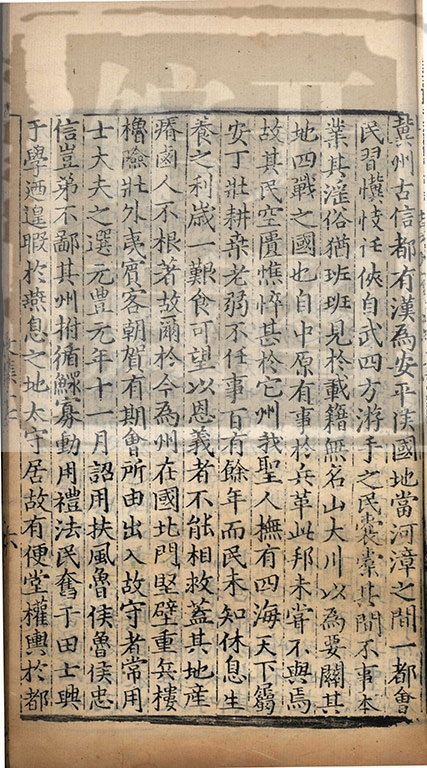 冀州古信都有漢為安平侯國地當河漳之間一都會
民習懻忮任俠自武四方游手之民裒橐其間不事本
業其淫俗猶班班見於載籍無名山大川以為要關其
地四戰之國也自中原有事於兵革此邦未嘗不與焉
故其民空匱憔悴甚於它州我聖人撫有四海天下篤
安丁壯耕桑老弱不任事百有餘年而民未知休息生
養之利歲一艱食可望以恩義者不能相救蓋其地產
瘠鹵人不根著故爾於今為州在國北門堅壁重兵樓
櫓險壯外夷賓客朝賀有期會所由出入故守者常用
士大夫之選元豐元年十一月詔用扶風魯侯魯侯忠
信豈弟不鄙其州拊循鰥寡動用禮法民奮于田士興
于學迺遑暇於燕息之地太守居故有便堂權輿於都